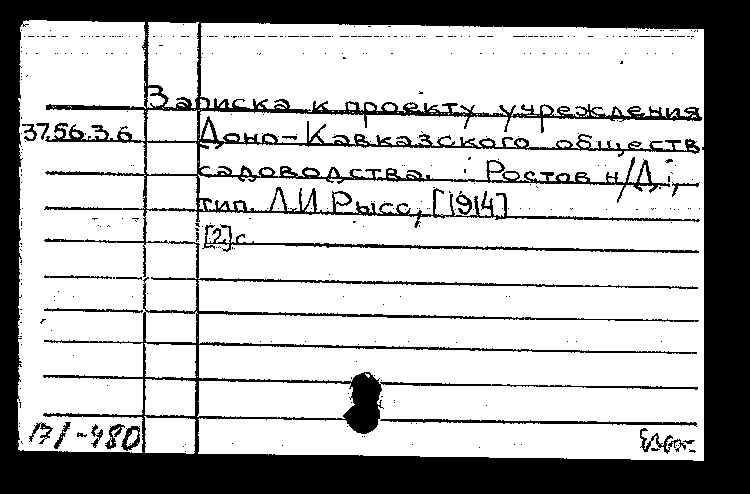 Записка к проекту учреждения
37.56.3.6 Доно-Кавказского обществ.
садоводства. : Ростов н/Д.;
тип. Л.И. Рысс, [1914]
[2] с.
17/-480